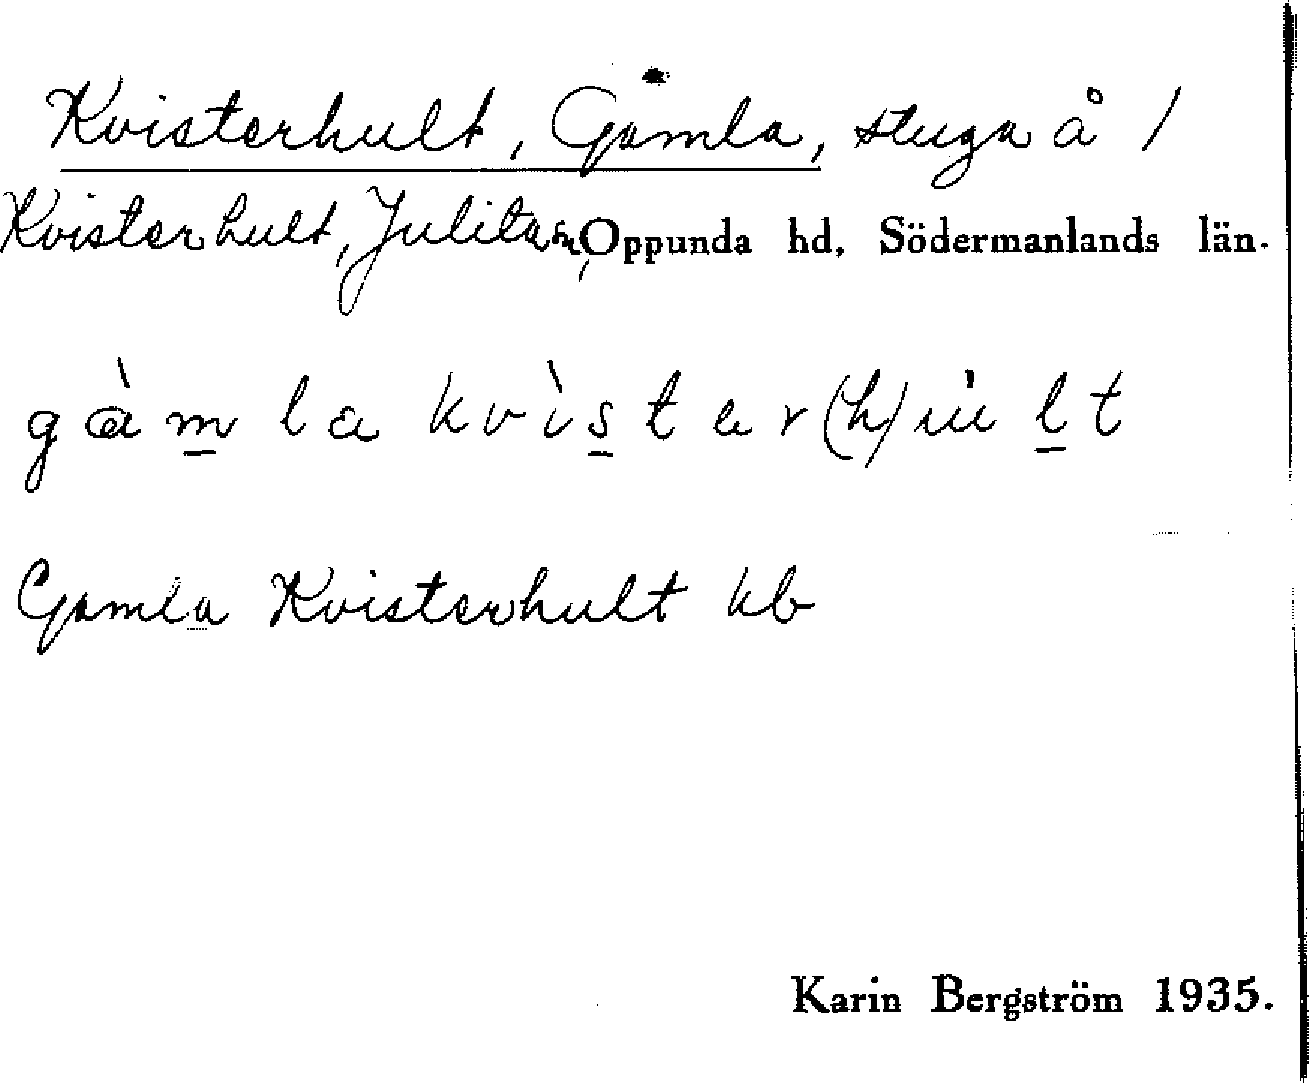 Kvisterhult, Gamla, stuga å 1
Kvisterhult, Julita sn, Oppunda hd, Södermanlands län.
gàmla kvìster(h)ùlt
Gamla Kvisterhult kb
Karin Bergström 1935.